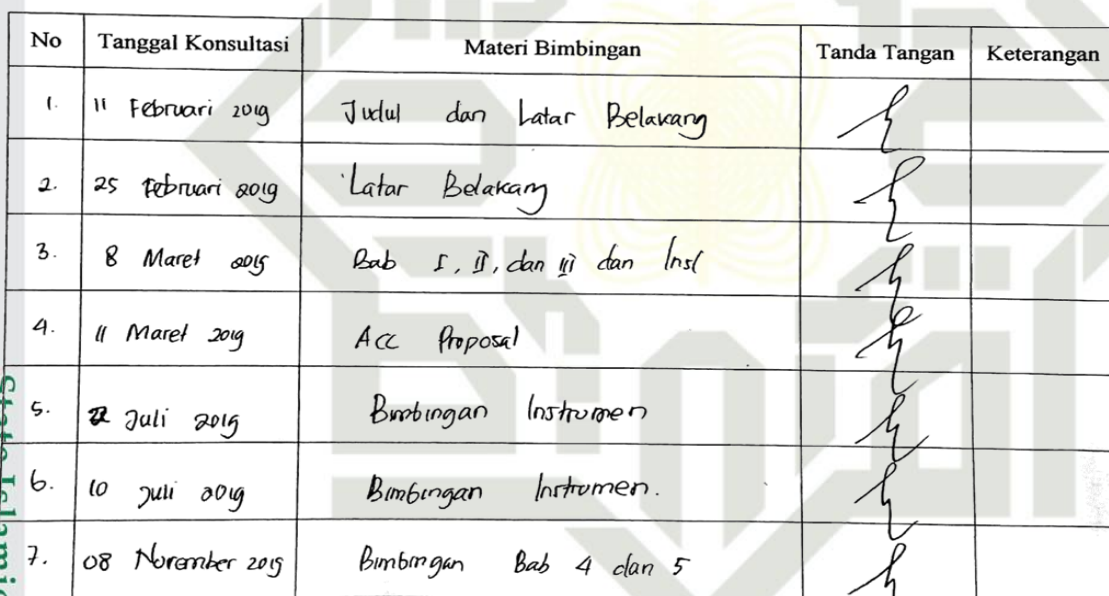 No Tanggal Konsultasi Materi Bimbingan Tanda Tangan Keterangan
1. 11 Februari 2019 Judul dan Latar Belakang
2. 25 Februari 2019 Latar Belakang
3. 8 Maret 2019 Bab I, II, dan III dan Inst
4. 11 Maret 2019 Acc Proposal
5. Juli 2019 Bimbingan Instrumen
6. 10 Juli 2019 Bimbingan Instrumen.
7. 08 November 2019 Bimbingan Bab 4 dan 5
State Islamic